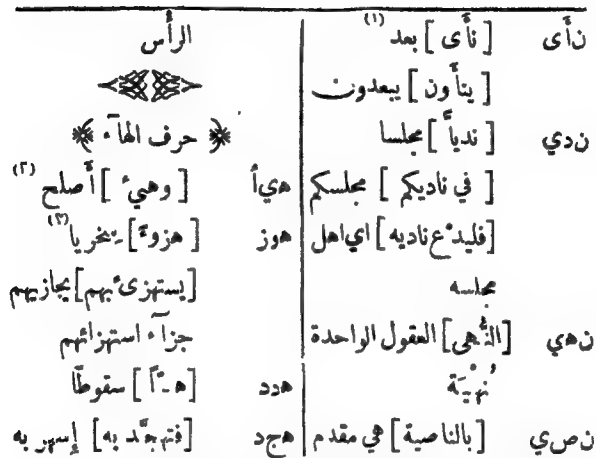 نأى [نأى] بعد (١)
[ينأون] يبعدون
ندي [نديّاً] مجلسا
[في ناديكم] مجلسكم
[فليدع ناديه] اي اهل
مجلسه
نهي [النُّهى] العقول الواحدة
نُهْيَة
نصي [بالناصية] هي مقدم
الرأس
﴿ حرف الهآء ﴾
هيأ [وهيئ] أصلح (٢)
هوز [هزوءً] سخريا (٣)
[يستهزئ بهم] يجازيهم
جزآء استهزائهم
هدد [هدّاً] سقوطًا
هجد [فتهجَّد به] إسهر به